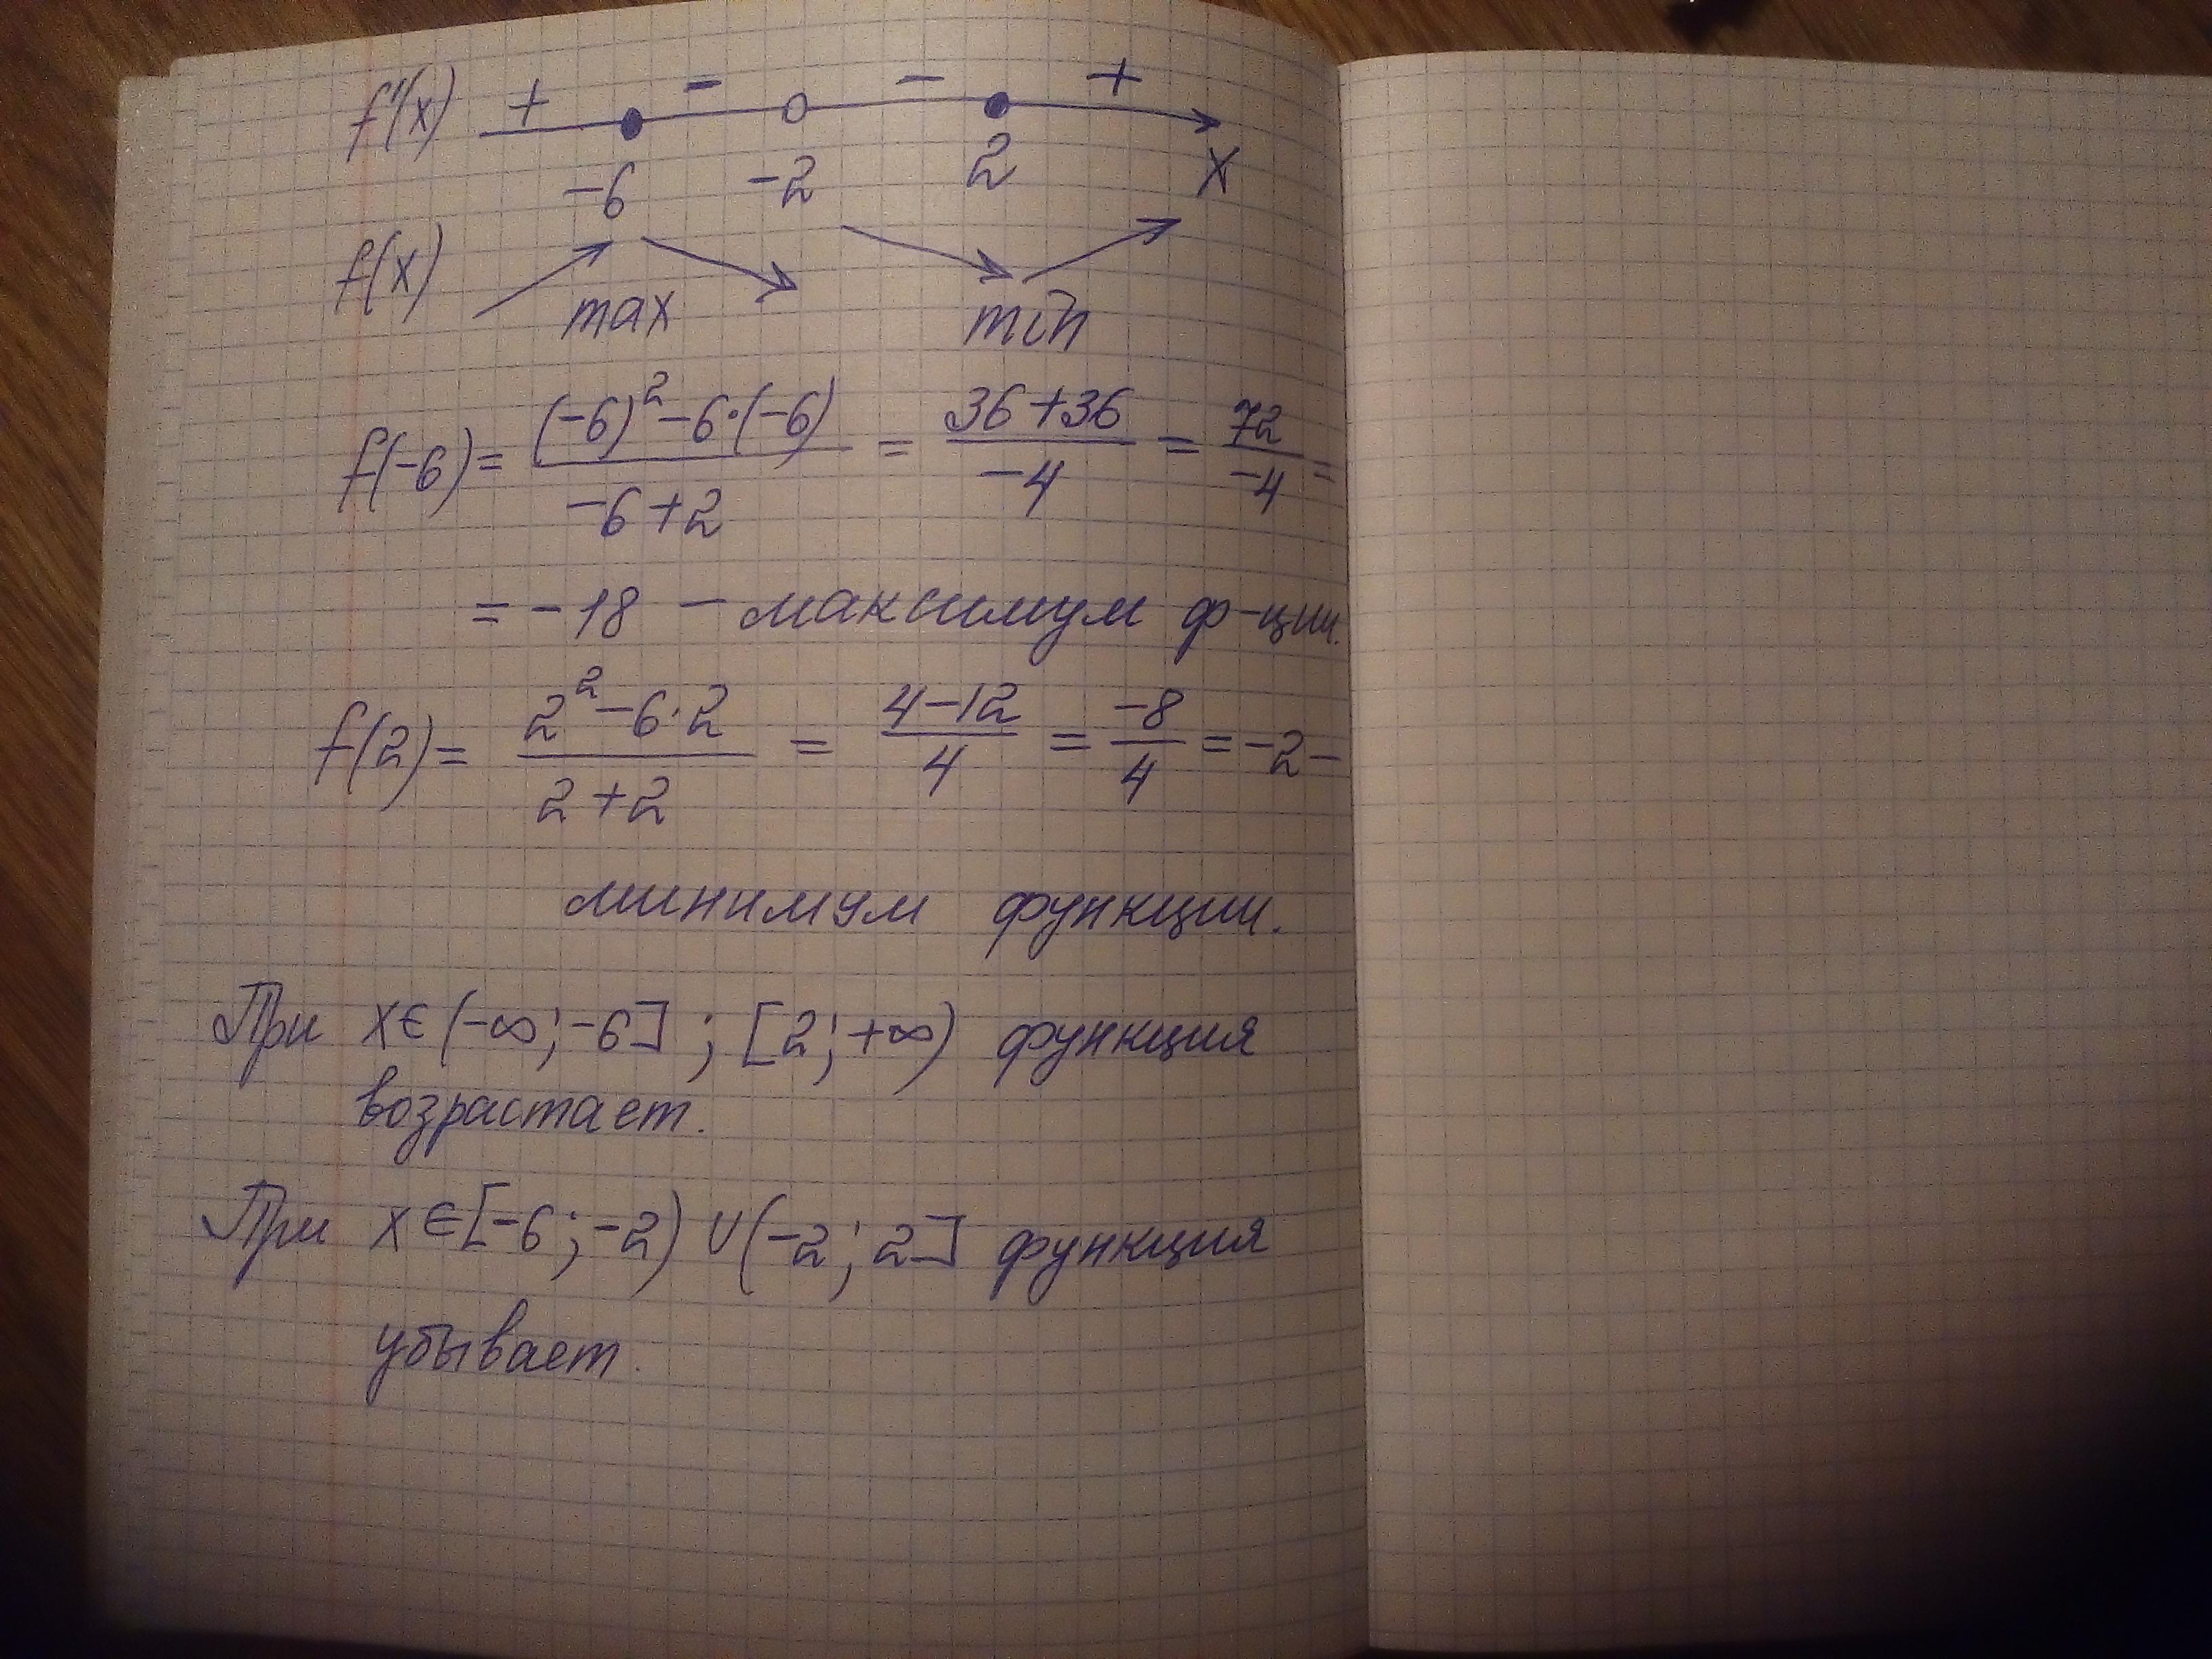 f'(x) + - - +
-6 -2 2 x
f(x)
max min
f(-6) = \frac{(-6)^2-6·(-6)}{-6+2} = \frac{36+36}{-4} = \frac{72}{-4} =
= -18 - максимум ф-ции.
f(2) = \frac{2^2-6·2}{2+2} = \frac{4-12}{4} = \frac{-8}{4} = -2 -
минимум функции.
При x∈(-∞;-6] ; [2;+∞) функция
возрастает.
При x∈[-6;-2) ∪ (-2;2] функция
убывает.